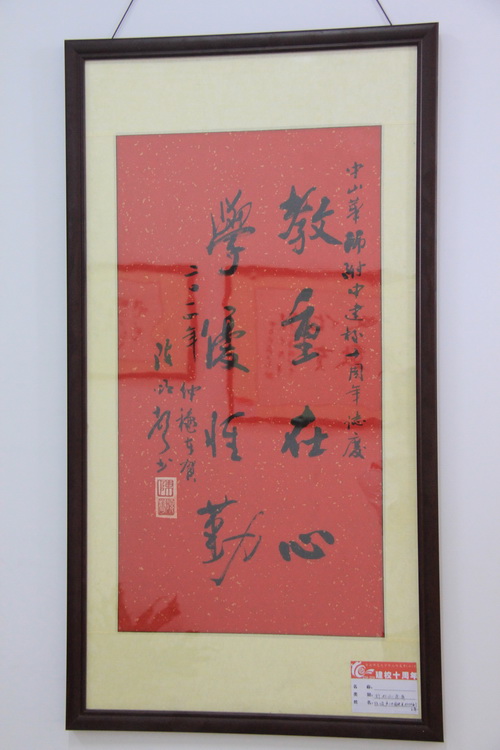 中山華師附中建校十周年誌慶
教重在心
學優惟勤
二〇一四年
仲秋
賀
書
建校十周年